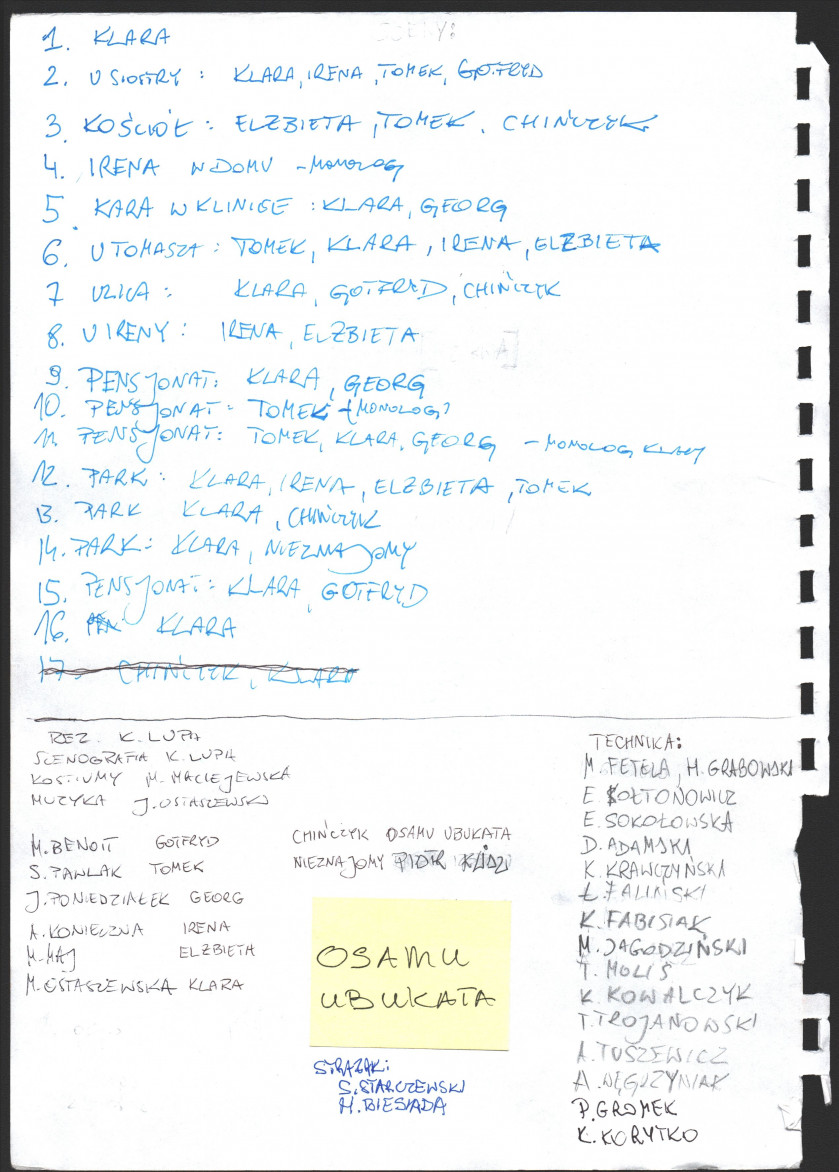 1. KLARA
2. U SIOSTRY : KLARA, IRENA, TOMEK, GOTFRYD
3. KOŚCIÓŁ : ELZBIETA, TOMEK, CHIŃCZYK
4. IRENA W DOMU - MONOLOG
5. KARA W KLINICE : KLARA, GEORG
6. U TOMASZA : TOMEK, KLARA, IRENA, ELZBIETA
7 ULICA : KLARA, GOTFRYD, CHIŃCZYK
8. U IRENY : IRENA, ELZBIETA
9. PENSJONAT: KLARA, GEORG
10. PENSJONAT: TOMEK - (MONOLOG?
11. PENSJONAT: TOMEK, KLARA, GEORG - MONOLOG KLARY
12. PARK : KLARA, IRENA, ELZBIETA, TOMEK
13. PARK KLARA, CHIŃCZYK
14. PARK: KLARA, NIEZNAJOMY
15. PENSJONAT: KLARA, GOTFRYD
16. KLARA
17. CHIŃCZYK, KLARA
REZ. K. LUPA
SCENOGRAFIA K. LUPA
KOSTIUMY M. MACIEJEWSKA
MUZYKA J. OSTASZEWSKI
M. BENOIT GOTFRYD
S. PAWLAK TOMEK
J. PONIEDZIAŁEK GEORG
A. KONIECZNA IRENA
M. MAJ ELZBIETA
M. OSTASZEWSKA KLARA
CHIŃCZYK OSAMU UBUKATA
NIEZNAJOMY PIOTR
OSAMU
UBUKATA
STRAŻAK:
S. STARCZEWSKI
M. BIESIADA
TECHNIKA:
M. FETELA, H. GRABOWSKI
E KOŁTONOWICZ
E. SOKOŁOWSKA
D. ADAMSKI
K. KRAWCZYŃSKA
Ł. ZALIŃSKI
K. FABISIAK
M. JAGODZIŃSKI
T. MOLIS
K. KOWALCZYK
T. TROJANOWSKI
A. TUSZEWICZ
A. WĘGRZYNIAK
P. GROMEK
K. KORYTKO